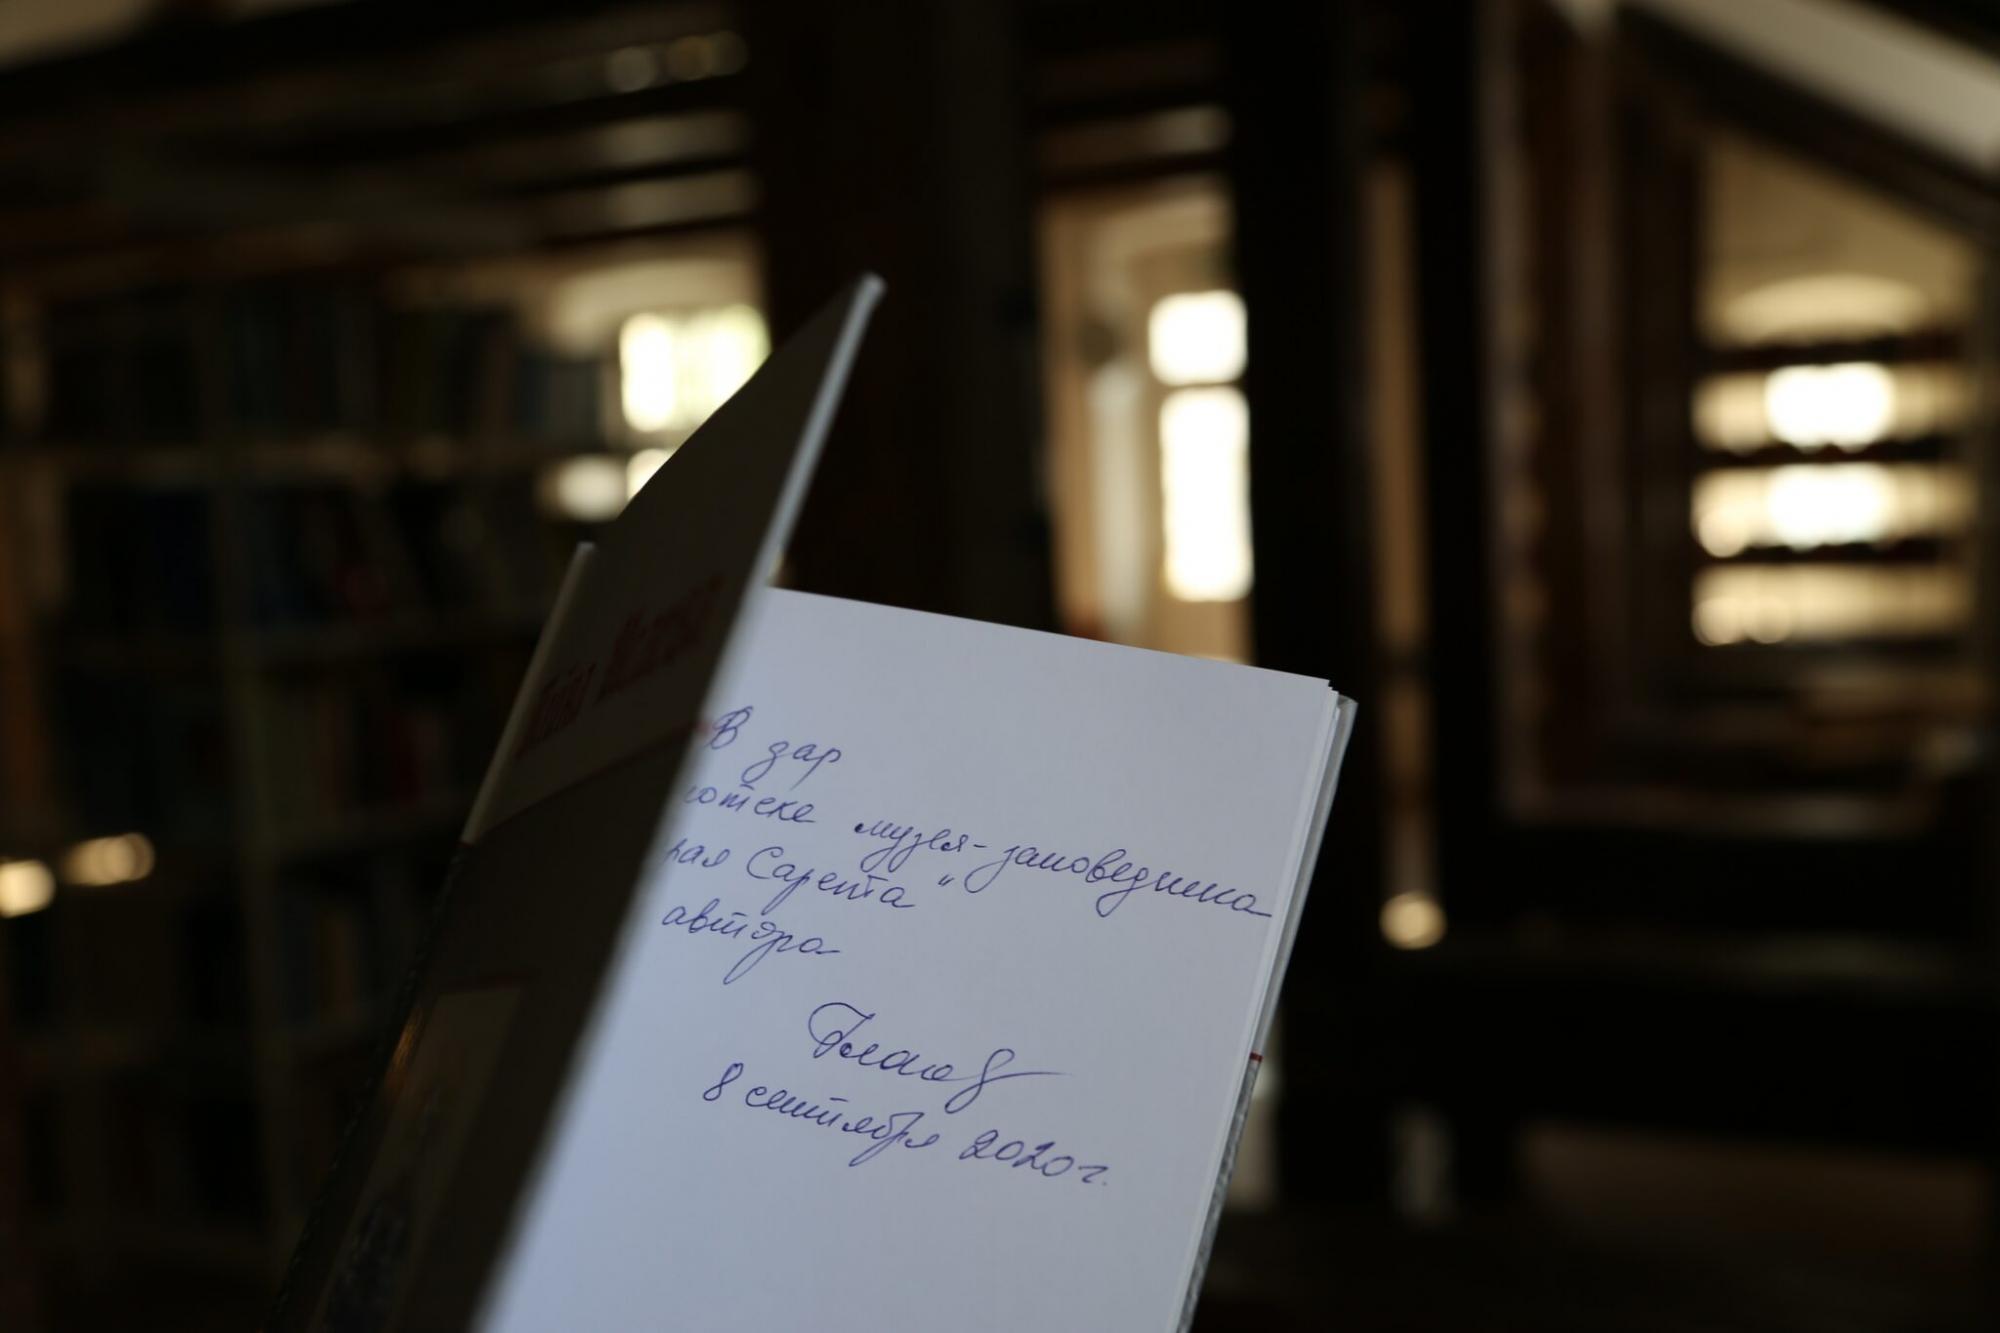 В дар
отеке музея-заповедника
рая Сарепта"
автора
8 сентября 2020 г.